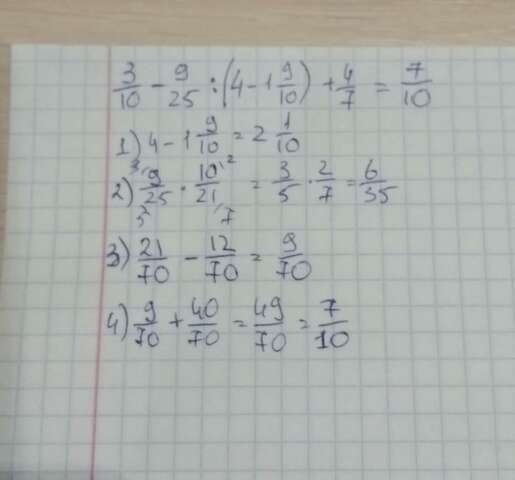 3/10 - 9/25 : (4 - 1 9/10) + 4/7 = 7/10
1) 4 - 1 9/10 = 2 1/10
2) 9/25 · 10/21 = 3/5 · 2/7 = 6/35
3) 21/70 - 12/70 = 9/70
4) 9/70 + 40/70 = 49/70 = 7/10